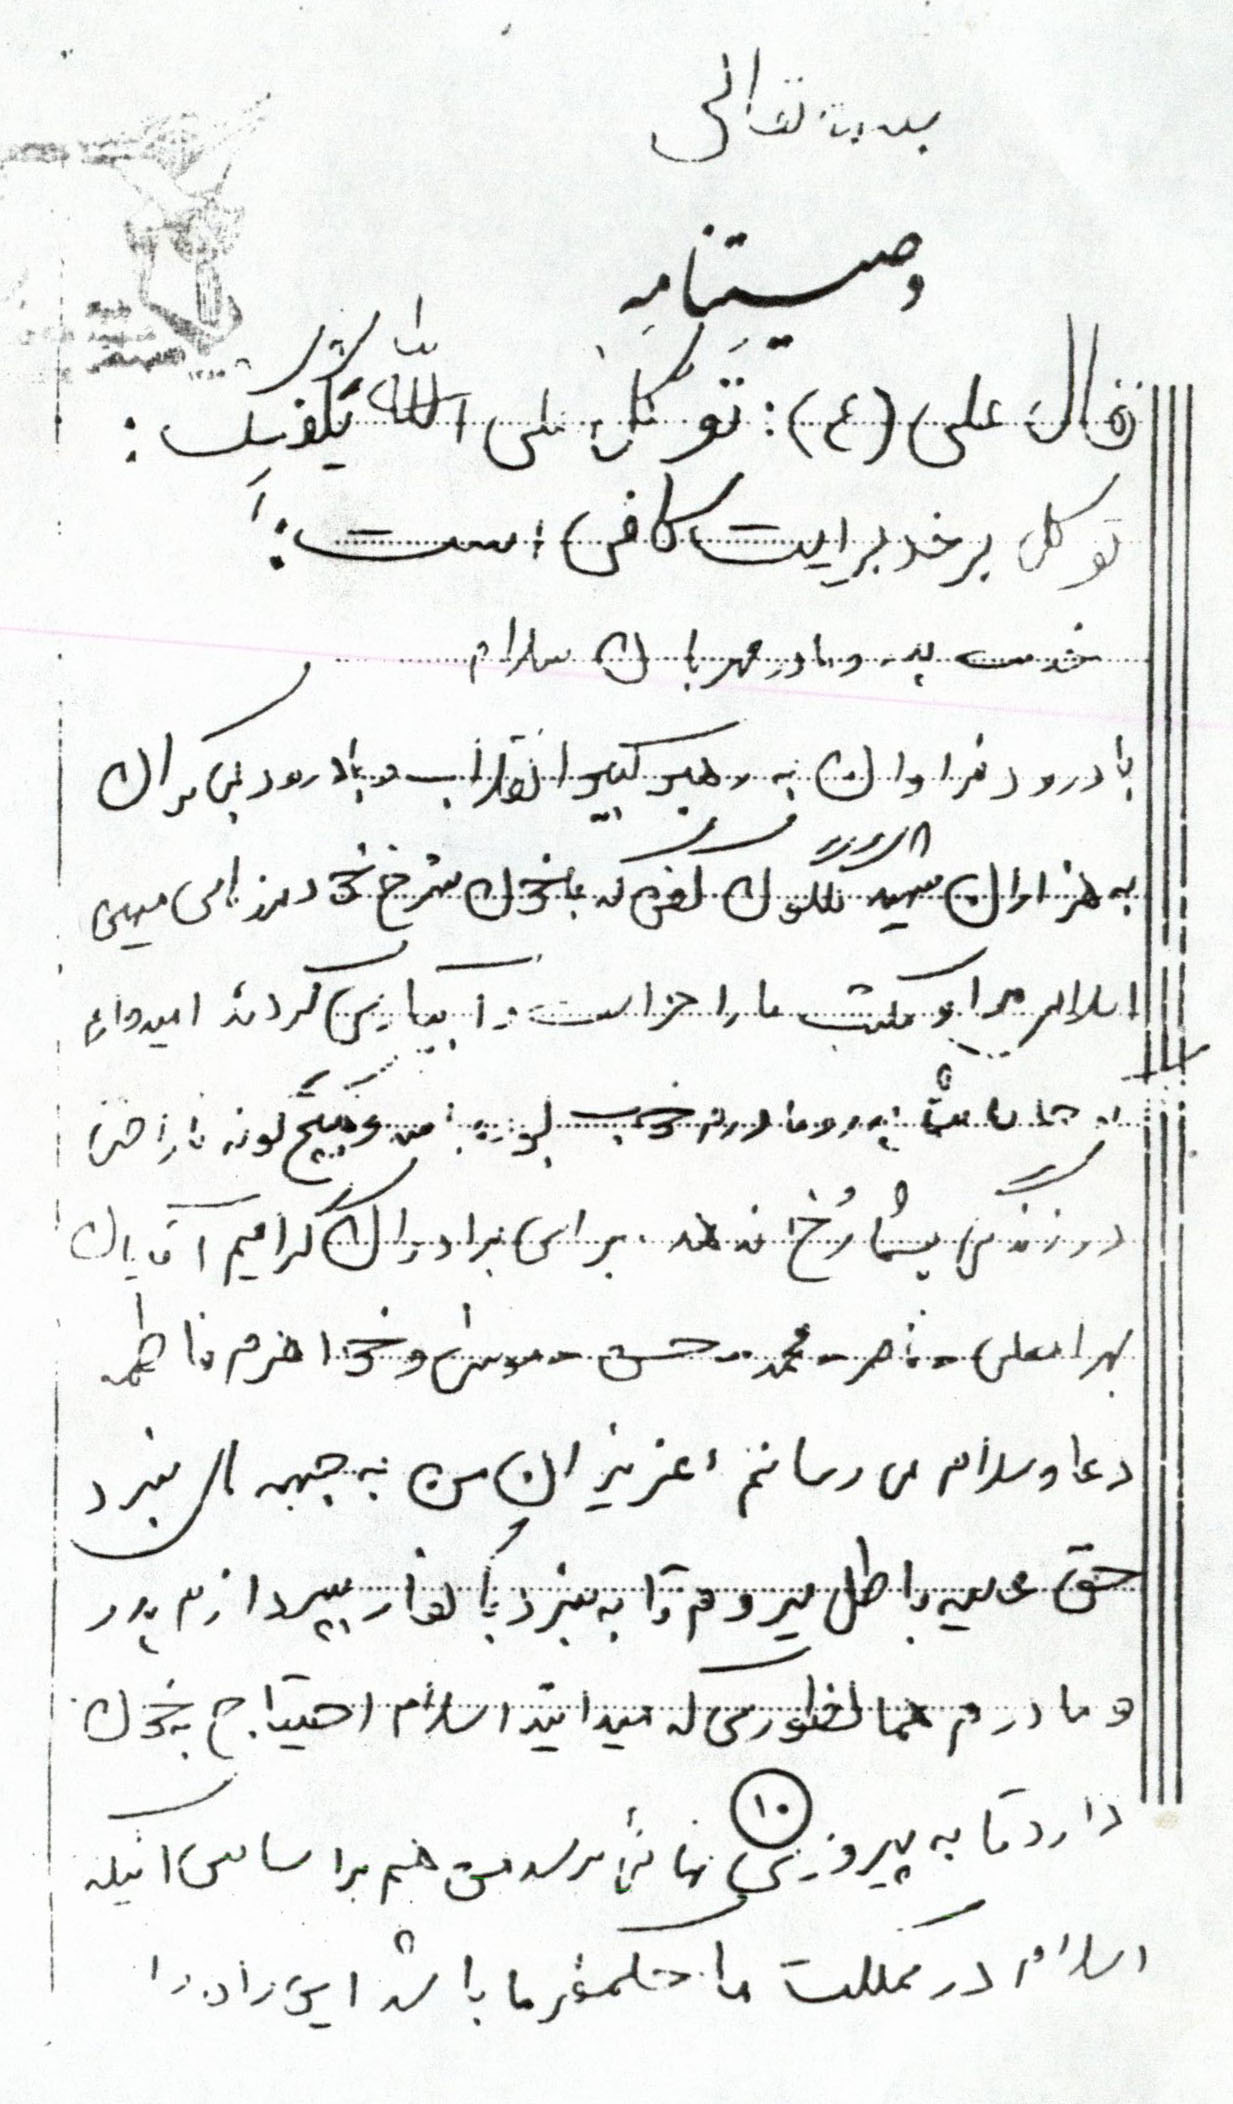 بسمه تعالی
وصیتنامه
قال علی (ع): توکل علی الله یکفیک:
توکل بر خدا برایت کافی است:
خدمت پدر و مادر مهربان سلام
با درود فراوان به رهبر کبیر انقلاب و با درود بی کران
به هزاران شهید گلگون کفن که با خون سرخ خود مرز امی میهن
اسلامی ما و مکتب ما را حراست و آبیاری کردند امیدوارم
که شما پدر و مادرم خوب بوده باشید و هیچ گونه ناراحتی
در زندگی بشما رخ ندهد. برای برادران گرامیم آقایان
بهرامعلی - ناصر - محمد - حسن - موسی و خواهرم فاطمه
دعا و سلام می رسانم عزیزان من به جبهه ی نبرد
حق علیه باطل میروم تا به نبرد با کفار بپردازم پدر
و مادرم همانطوری که میدانید اسلام احتیاج به خون
دارد تا به پیروزی نهائی برسد من هم بر اساس اینکه
۱۰
اسلام در مملکت ما حکمفرما باشد این راه را